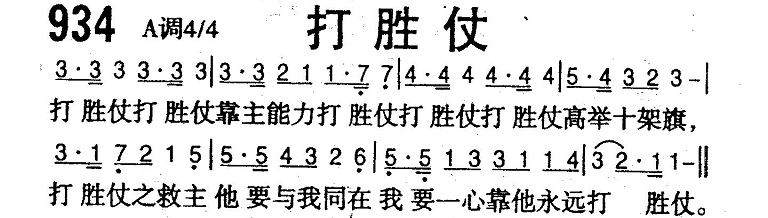 934 A调4/4 打胜仗
3·3 3 3·3 3|3·3 2 1 1·7 7|4·4 4 4·4 4|5·4 3 2 3-|
打胜仗打胜仗靠主能力打胜仗打胜仗打胜仗高举十架旗，
3·1 7 2 1 5|5·5 4 3 2 6|5·5 1 3 3 1 1 4|3 2·1 1-‖
打胜仗之救主他要与我同在我要一心靠他永远打 胜仗。